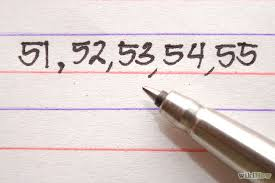 51, 52, 53, 54, 55
wikiHow